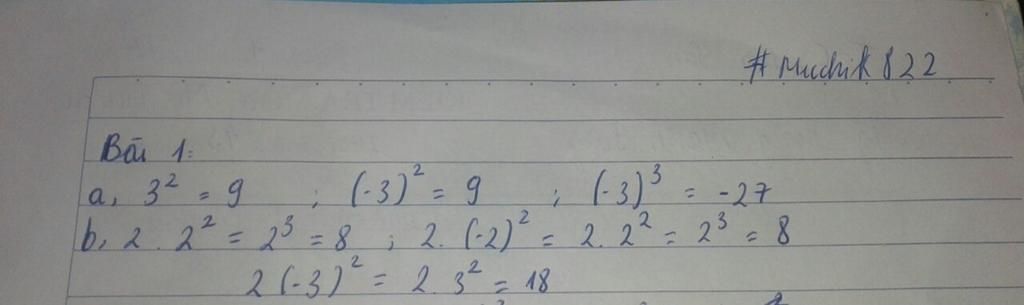 #Muchik822
Bài 1:
a, 3² = 9 ; (-3)² = 9 ; (-3)³ = -27
b, 2 . 2² = 2³ = 8 ; 2. (-2)² = 2. 2² = 2³ = 8
2 (-3)² = 2. 3² = 18